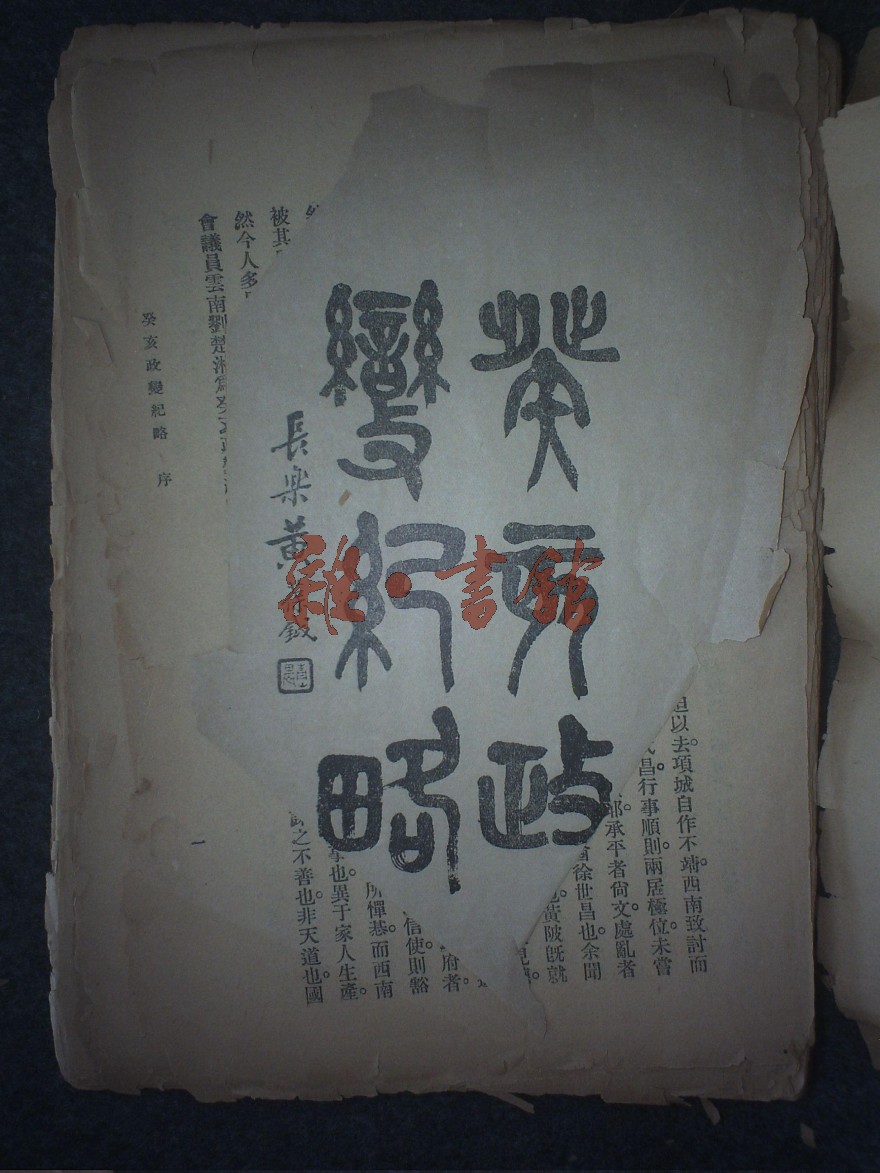 癸亥政
變紀略
長樂黃
雜·書館
且以去。項城自作不靖。西南致討。而
昌行事順則。兩居極位。未嘗
承平者尙文。處亂者
徐世昌也。余聞
黃陂旣就
府者
信使則豁
所憚惎。而西南
也異于家人生產。
之不善也。非天道也。國
被其
然今人多
會議員雲南劉楚湘
癸亥政變紀略 序
一